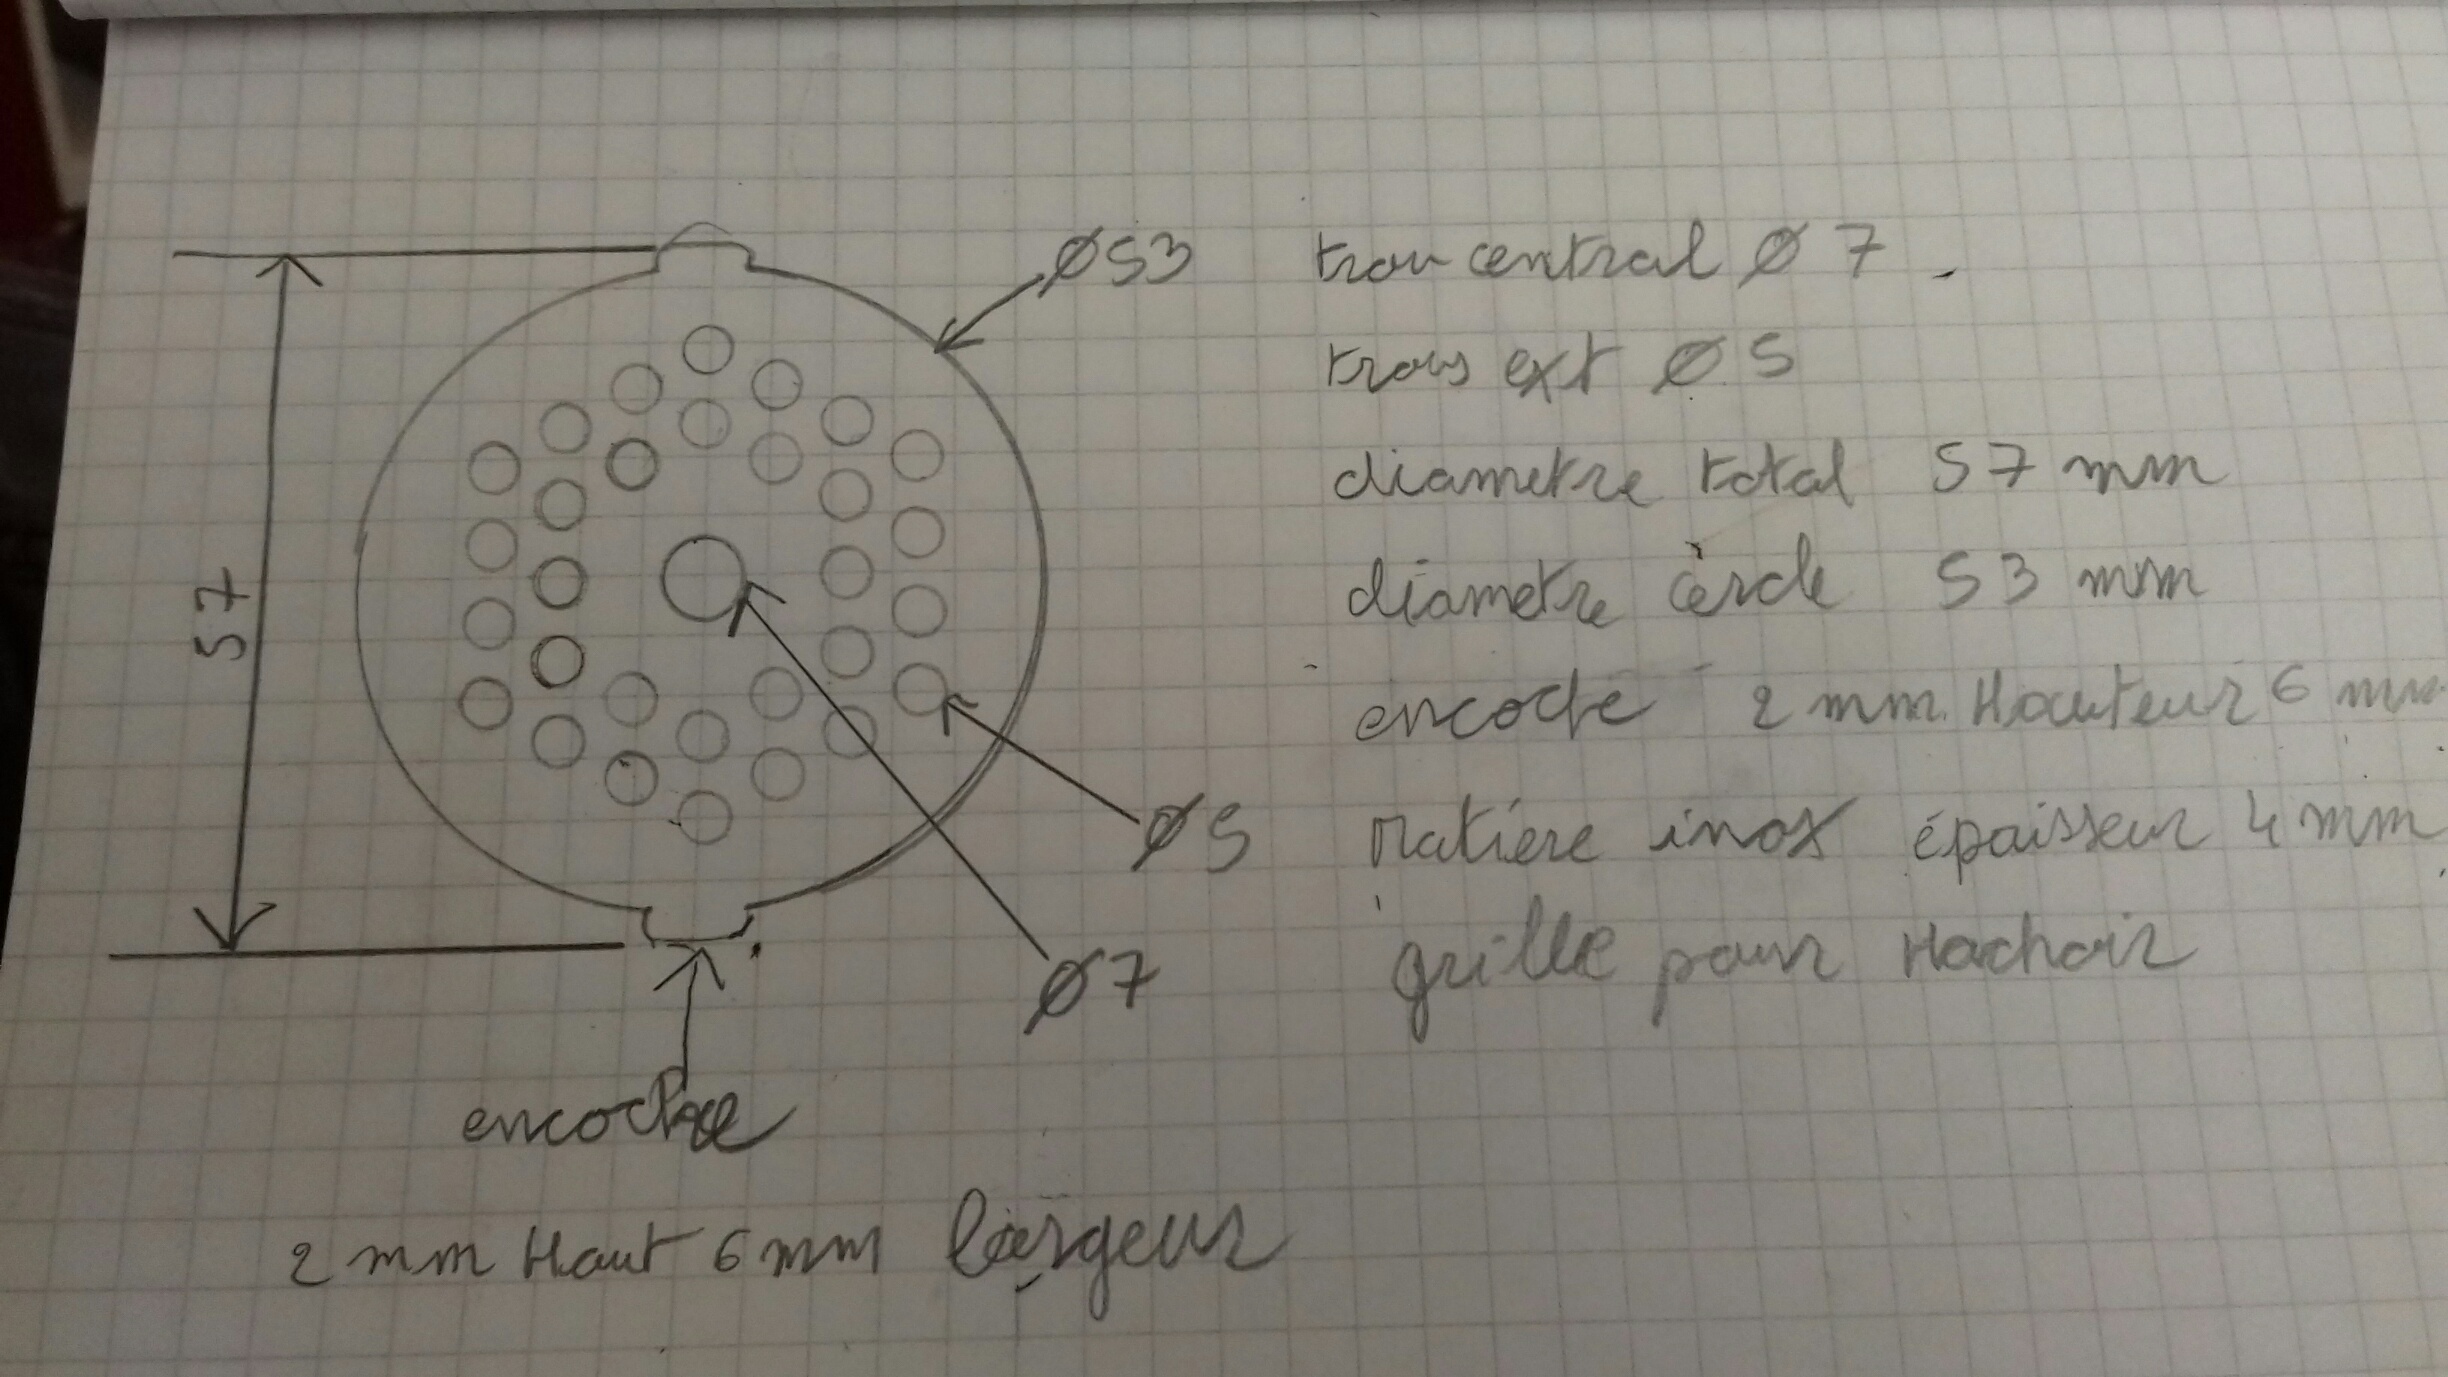 Ø53
trou central Ø 7.
trous ext Ø 5
diametre total 57 mm
diametre cercle 53 mm
57
encoche 2 mm Hauteur 6 mm
Ø5
Matière inox épaisseur 4 mm
Ø7
grille pour Hachoir
encoche
2 mm Haut 6 mm largeur